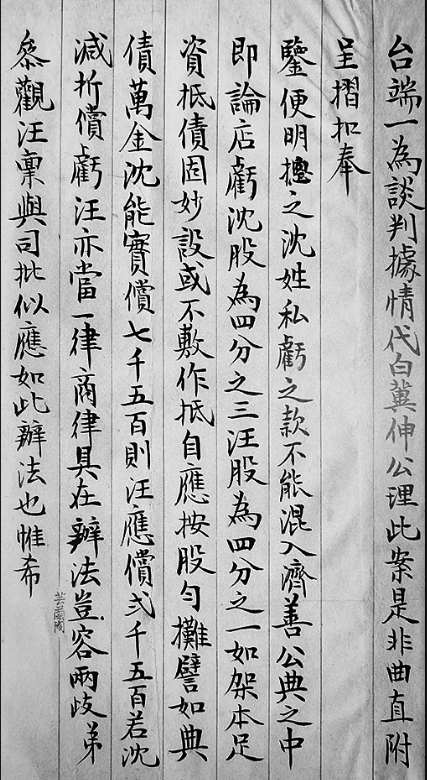 台端一為談判據情代白冀伸公理此案是非曲直附
呈摺扣奉
鑒便明摠之沈姓私虧之款不能混入濟善公典之中
即論店虧沈股為四分之三汪股為四分之一如架本足
資抵債固妙設或不敷作抵自應按股勻攤譬如典
債萬金沈能實償七千五百則汪應償弍千五百若沈
減折償虧汪亦當一律商律具在辦法豈容兩歧弟
叅觀汪稟與司批似應如此辦法也惟希